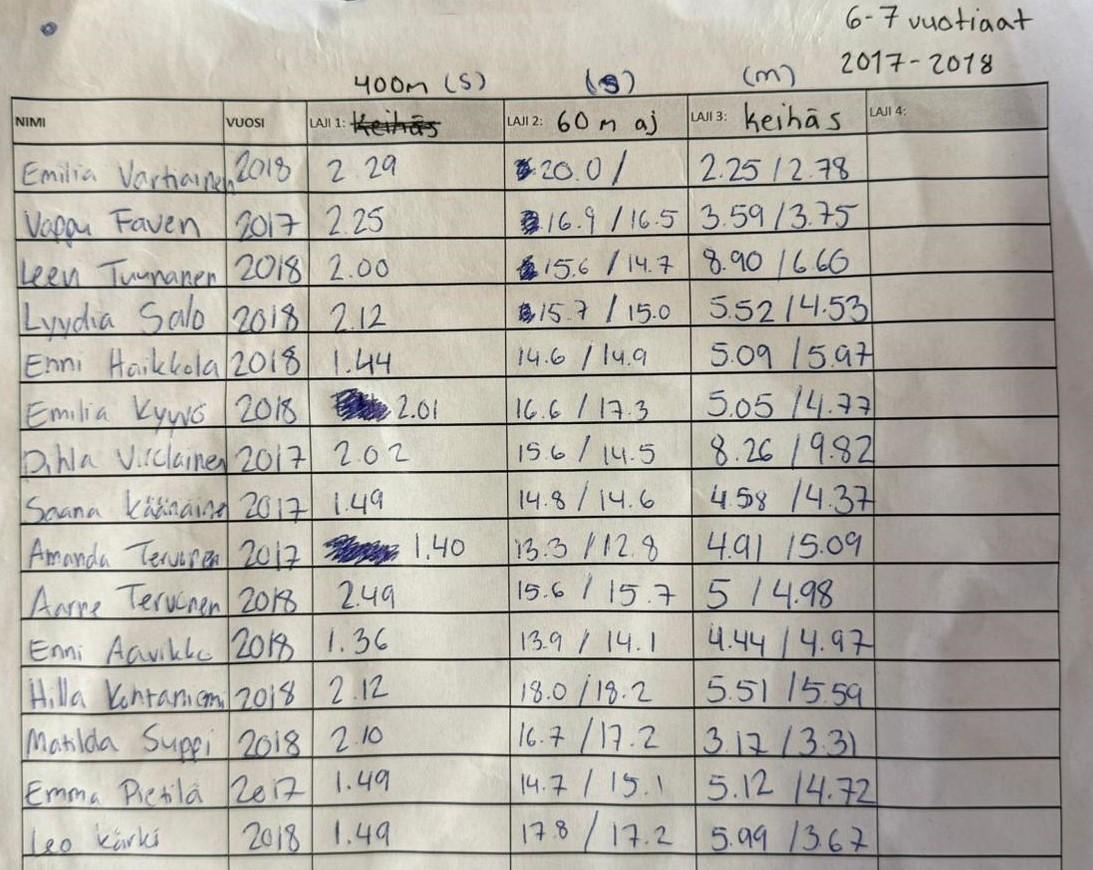 6-7 vuotiaat
2017-2018
400m (s) (s) (m)
NIMI VUOSI LAJI 1: Keihäs LAJI 2: 60 m aj LAJI 3: keihäs LAJI 4:
Emilia Vartiainen 2018 2.29 20.0 / 2.25 / 2.78
Vappu Faven 2017 2.25 16.9 / 16.5 3.59 / 3.75
Leen Tuunanen 2018 2.00 15.6 / 14.7 8.90 / 6.66
Lyydia Salo 2018 2.12 15.7 / 15.0 5.52 / 4.53
Enni Haikkola 2018 1.44 14.6 / 14.9 5.09 / 5.97
Emilia 2018 2.01 16.6 / 17.3 5.05 / 4.77
2017 2.02 15.6 / 14.5 8.26 / 9.82
Saana 2017 1.49 14.8 / 14.6 4.58 / 4.37
Amanda Tervonen 2017 1.40 13.3 / 12.8 4.91 / 5.09
Aarre Tervonen 2018 2.49 15.6 / 15.7 5 / 4.98
Enni Aavikko 2018 1.36 13.9 / 14.1 4.44 / 4.97
Hilla 2018 2.12 18.0 / 18.2 5.51 / 5.59
Matilda Suppi 2018 2.10 16.7 / 17.2 3.17 / 3.31
Emma Pietilä 2017 1.49 14.7 / 15.1 5.12 / 4.72
Leo Kärki 2018 1.49 17.8 / 17.2 5.99 / 3.67